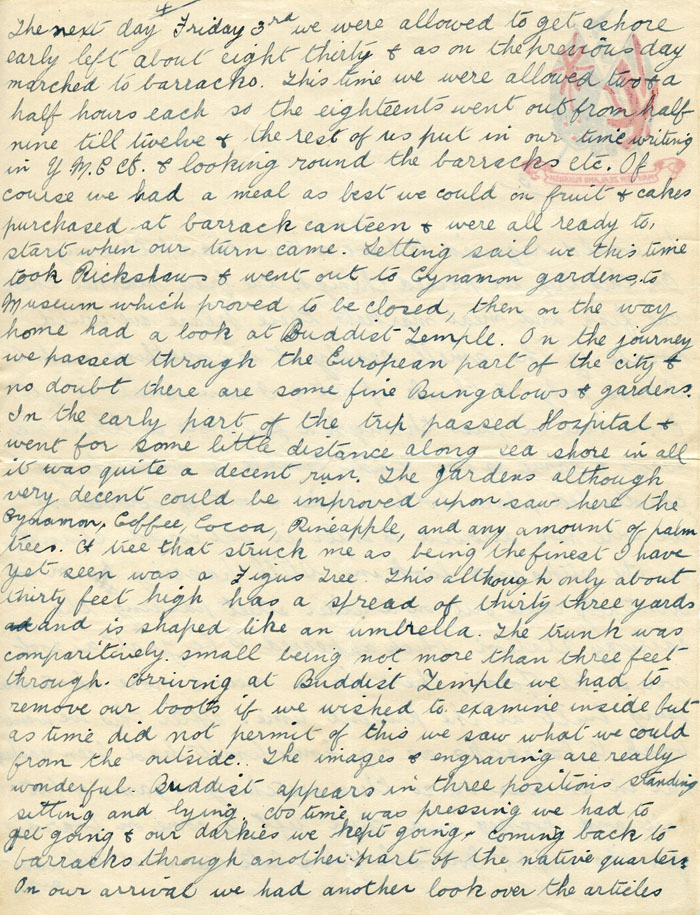 4
The next day Friday 3rd we were allowed to get ashore
early left about eight thirty & as on the previous day
marched to barracks. This time we were allowed two & a
half hours each so the eighteents went out from half
nine till twelve & the rest of us put in our time writing
in Y M.C A. & looking round the barracks etc. Of
course we had a meal as best we could on fruit & cakes
purchased at barrack canteen & were all ready to,
start when our turn came. Setting sail we this time
took Rickshaws & went out to Cynamon gardens, to
Museum which proved to be closed, then on the way
home had a look at Buddist Temple. On the journey
we passed through the European part of the city &
no doubt there are some fine Bungalows & gardens.
In the early part of the trip passed Hospital &
went for some little distance along sea shore in all
it was quite a decent run. The gardens although
very decent could be improved upon saw here the
Cynamon, Coffee, Cocoa, Pineapple, and any amount of palm
trees. A tree that struck me as being the finest I have
yet seen was a Figus Tree. This although only about
thirty feet high has a spread of thirty three yards
and is shaped like an umbrella. The trunk was
comparitively small being not more than three feet
through. Arriving at Buddist Temple we had to
remove our boots if we wished to examine inside but
as time did not permit of this we saw what we could
from the outside. The images & engraving are really
wonderful. Buddist appears in three positions standing
sitting and lying. As time was pressing we had to
get going & our darkies we kept going, coming back to
barracks through another part of the native quarters
On our arrival we had another look over the articles